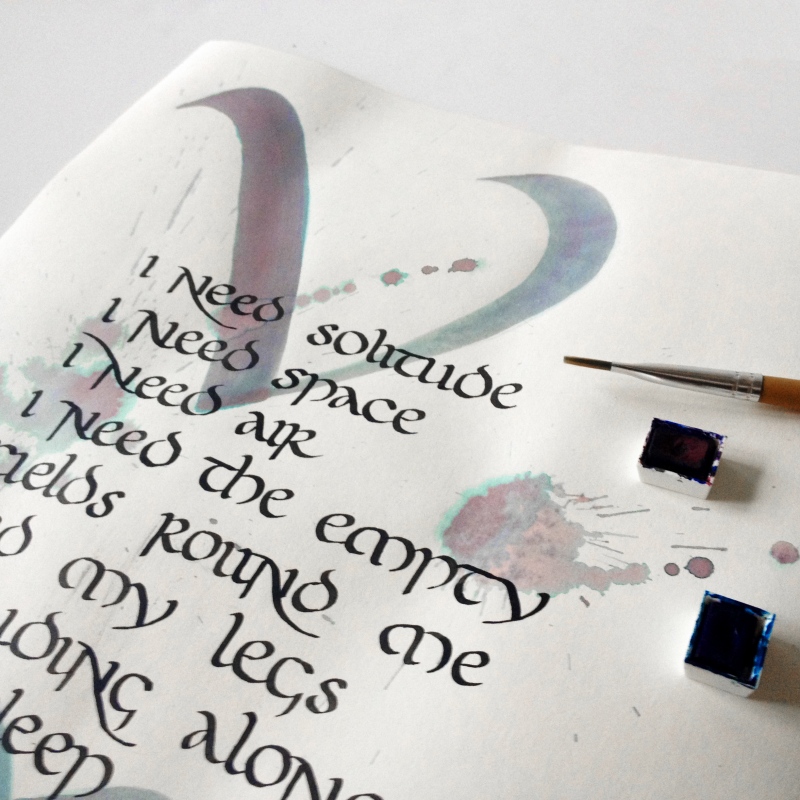 V
I need solitude
I need space
I need air
I need the empty
ields round me
d my legs
nding along
leep